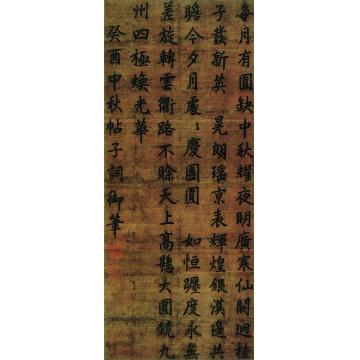 每月有圓缺中秋耀夜明廣寒仙闕迥桂
子發新英　晃朗瑶京表輝煌銀漢邊共
瞻今夕月處〻慶團圓　如恒躔度永無
差旋轉雲衢路不賒天上高懸大圓鏡九
州四極煥光華
癸酉中秋帖子詞御筆